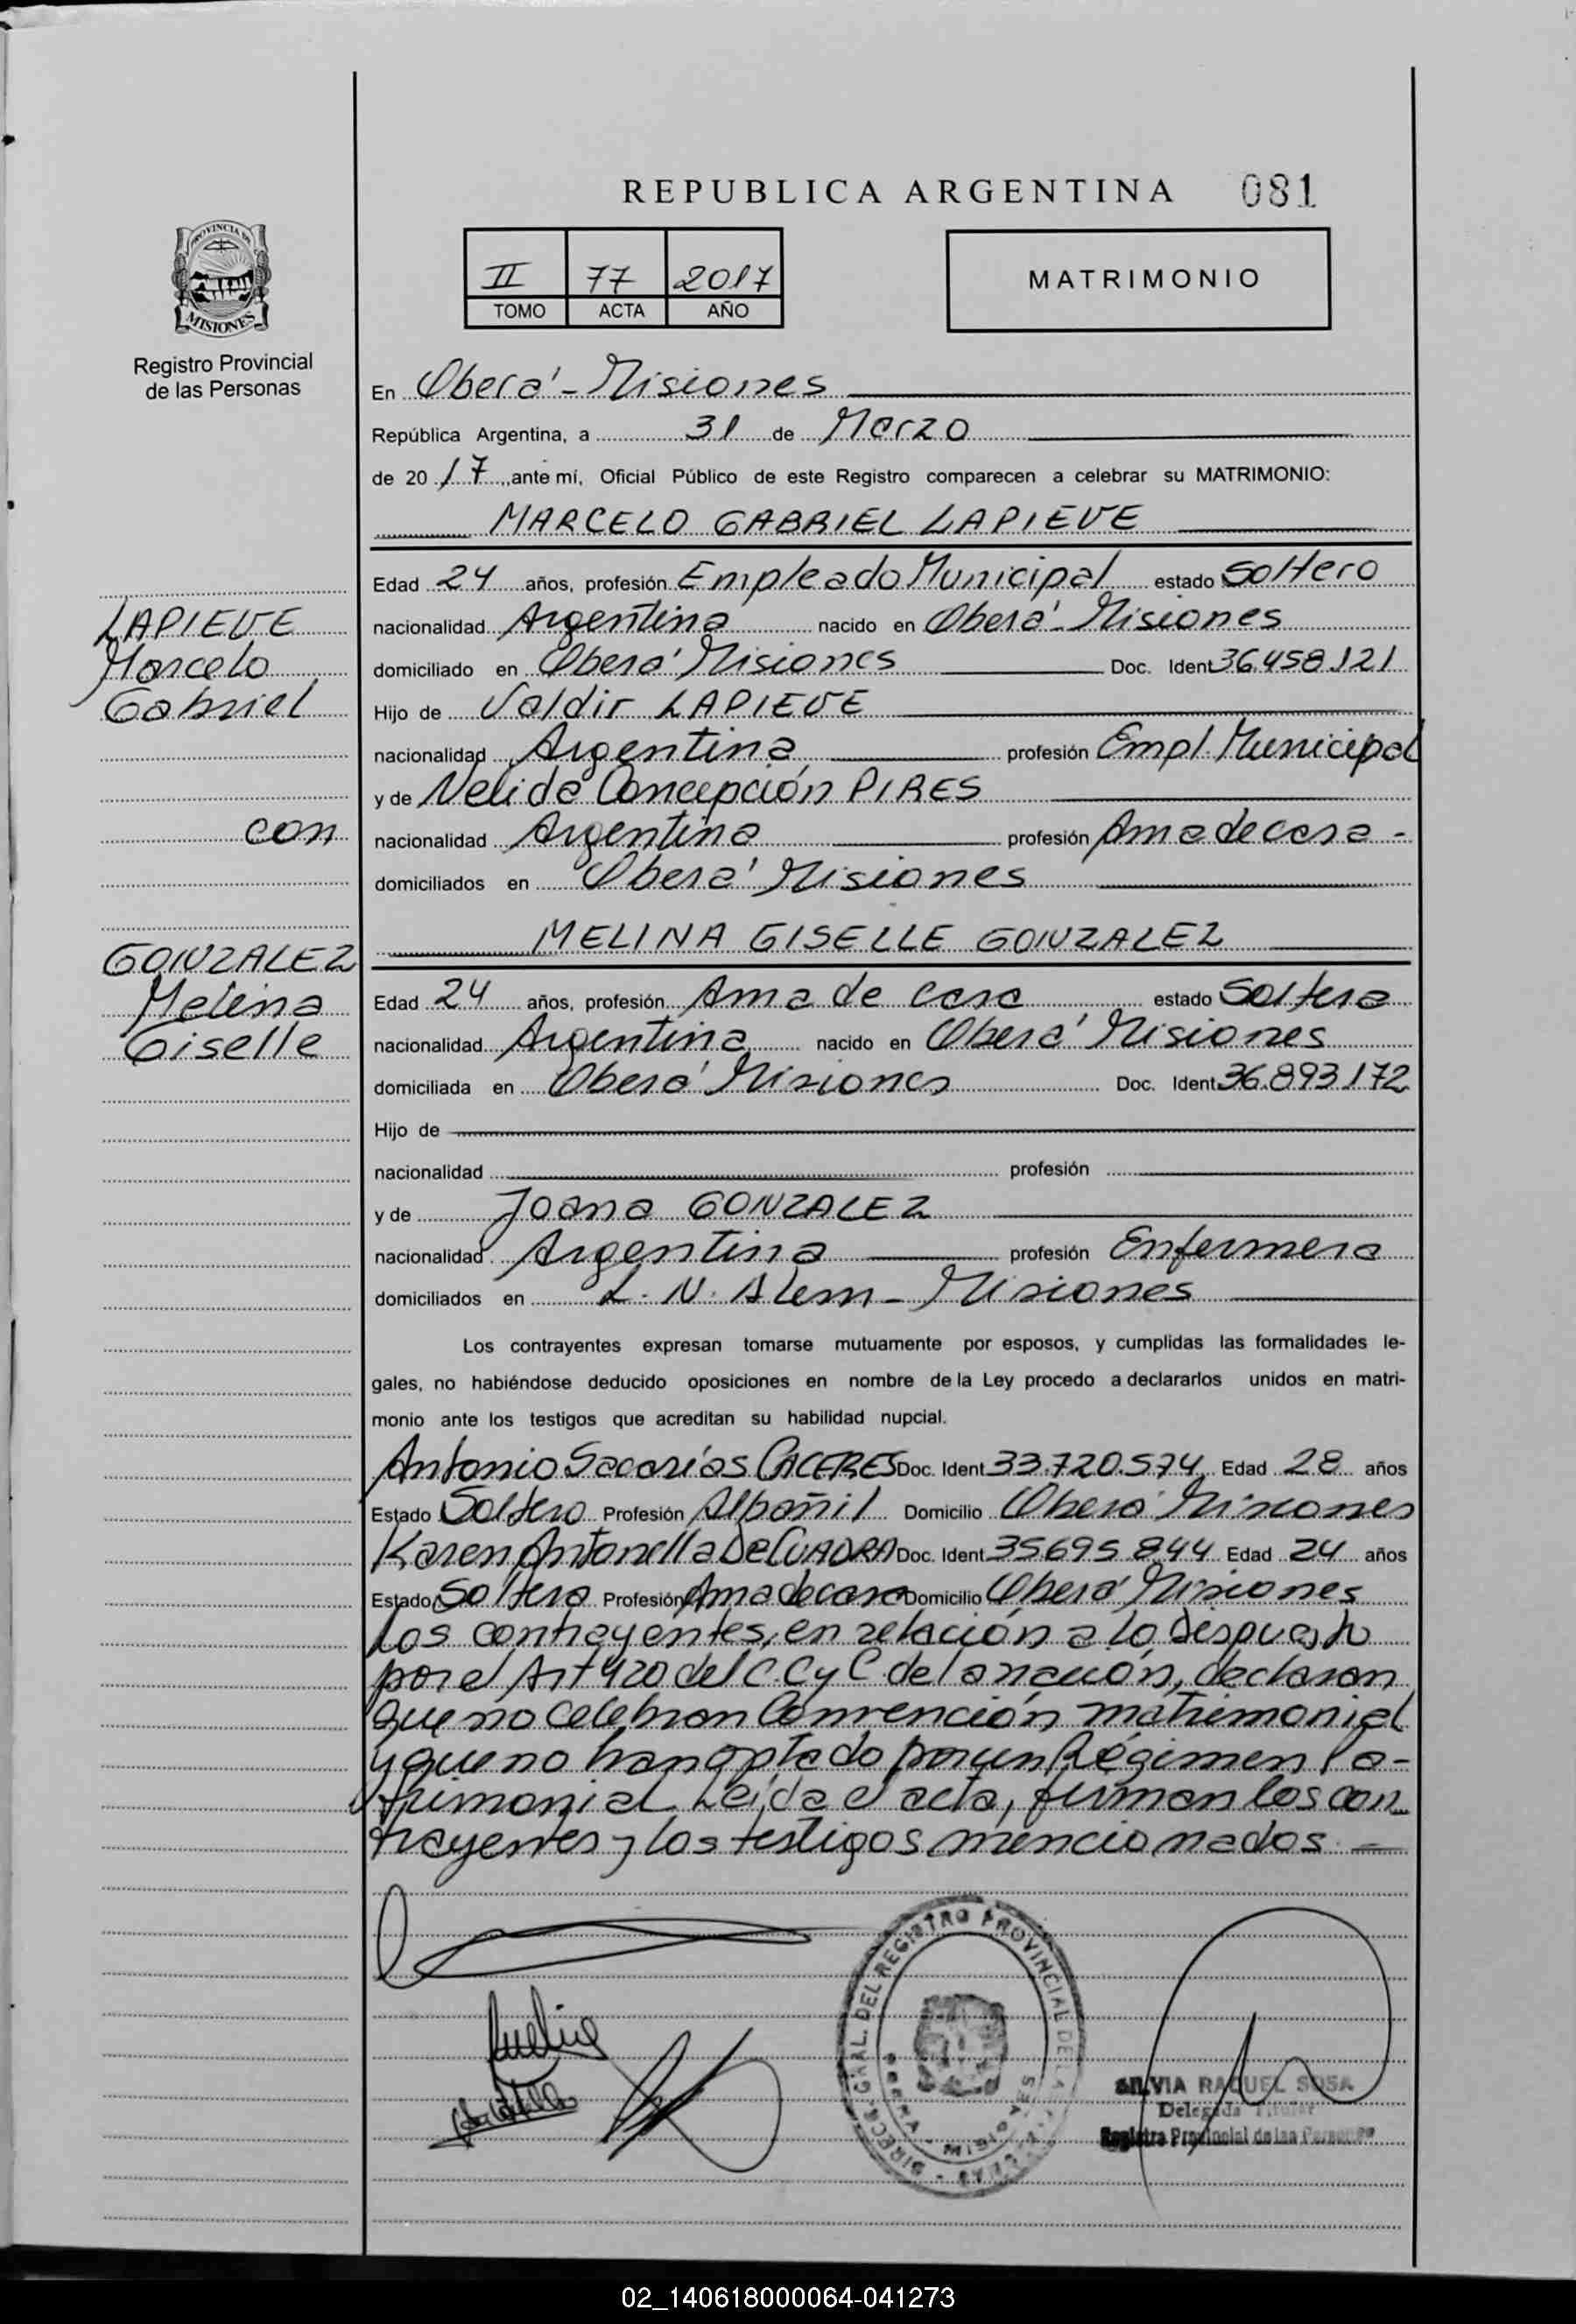 REPUBLICA ARGENTINA 081
PROVINCIA DE
MISIONES
Registro Provincial
de las Personas
II 77 2017
TOMO ACTA AÑO
MATRIMONIO
En Oberá - Misiones
República Argentina, a 31 de Marzo
de 20 17, ante mí, Oficial Público de este Registro comparecen a celebrar su MATRIMONIO:
MARCELO GABRIEL LAPIEVE
LAPIEVE
Marcelo
Gabriel
con
GONZALEZ
Melina
Giselle
Edad 24 años, profesión Empleado Municipal estado Soltero
nacionalidad Argentina nacido en Oberá - Misiones
domiciliado en Oberá Misiones Doc. Ident 36.458.121
Hijo de Valdir LAPIEVE
nacionalidad Argentina profesión Empl. Municipal
y de Nelida Concepción PIRES
nacionalidad Argentina profesión Ama de casa -
domiciliados en Oberá Misiones
MELINA GISELLE GONZALEZ
Edad 24 años, profesión Ama de casa estado Soltera
nacionalidad Argentina nacido en Oberá Misiones
domiciliada en Oberá Misiones Doc. Ident 36.893.172
Hijo de
nacionalidad profesión
y de Joana GONZALEZ
nacionalidad Argentina profesión Enfermera
domiciliados en L. N. Alem - Misiones
Los contrayentes expresan tomarse mutuamente por esposos, y cumplidas las formalidades le-
gales, no habiéndose deducido oposiciones en nombre de la Ley procedo a declararlos unidos en matri-
monio ante los testigos que acreditan su habilidad nupcial.
Antonio Sacarías CACERES Doc. Ident 33.720.574 Edad 28 años
Estado Soltero Profesión Albañil Domicilio Oberá Misiones
Karen Antonella De CUADRA Doc. Ident 35695.844 Edad 24 años
Estado Soltera Profesión Ama de casa Domicilio Oberá Misiones
Los contrayentes, en relación a lo dispuesto
por el Art 420 del C.C y C. de la nación, declaran
que no celebran Convención matrimonial
y que no han optado por un Régimen Pa-
trimonial Leída el acta, firman los con
trayentes y los testigos mencionados. -
DIRECC. GRAL. DEL REGISTRO PROVINCIAL DE LA
SILVIA RAQUEL SOSA
Delegada Titular
Registro Provincial de las Personas
02_140618000064-041273